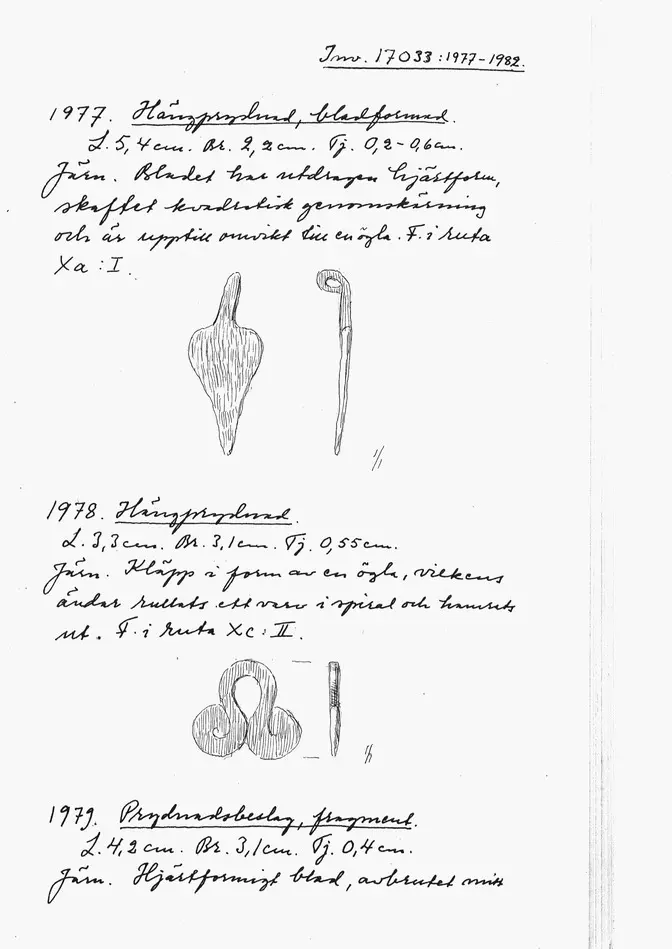 Inv. 17033:1977-1982.
1977. Hängprydnad, bladformad.
L. 5,4 cm. Br. 2,2 cm. Tj. 0,2-0,6 cm.
Järn. Bladet har utdragen hjärtform,
skaftet kvadratisk genomskärning
och är upptill omvikt till en ögla. F. i ruta
Xa:I.
1/1
1978. Hängprydnad.
L. 3,3 cm. Br. 3,1 cm. Tj. 0,55 cm.
Järn. Kläpp i form av en ögla, vilkens
ändar rullats ett varv i spiral och hamrats
ut. F. i ruta Xc:II.
1/1
1979. Prydnadsbeslag, fragment.
L. 4,2 cm. Br. 3,1 cm. Tj. 0,4 cm.
Järn. Hjärtformigt blad, avbrutet mitt